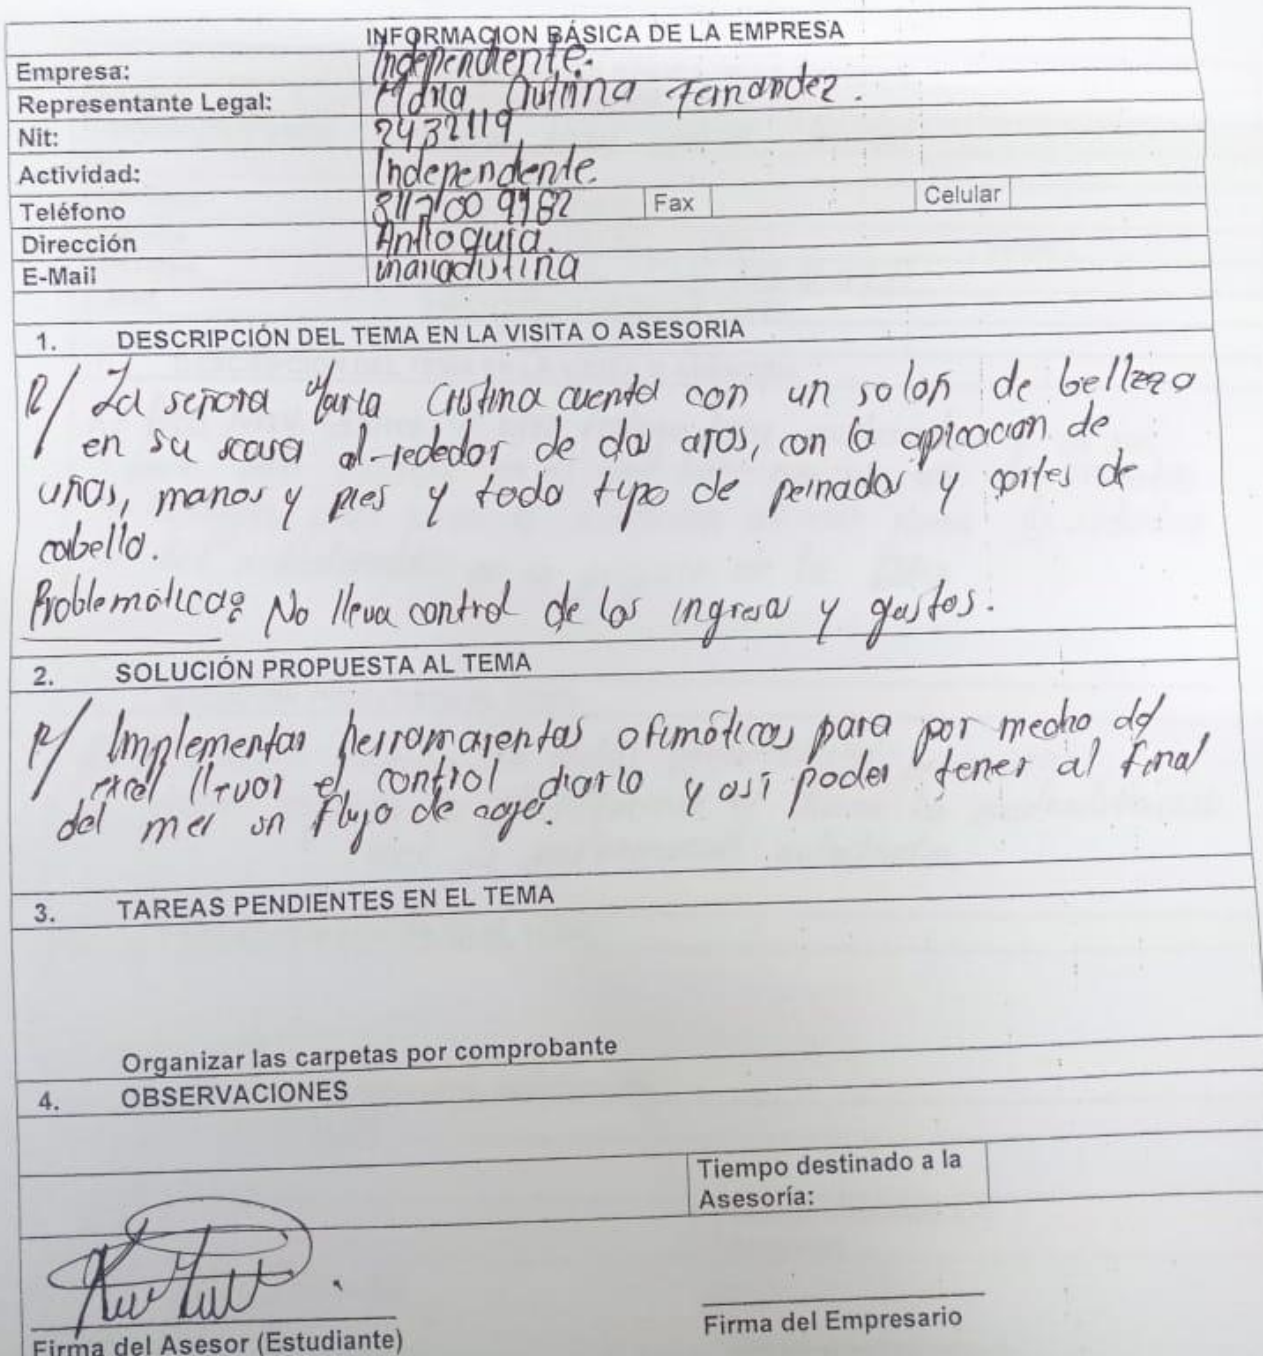 INFORMACION BÁSICA DE LA EMPRESA
Empresa: Independiente.
Representante Legal: Maria Cristina Fernandez.
Nit: 2432119
Actividad: Independente.
Teléfono Fax Celular
Dirección Antioquia.
E-Mail
1. DESCRIPCIÓN DEL TEMA EN LA VISITA O ASESORIA
R/ La señora Maria Cristina cuenta con un salon de belleza
en su casa al-rededor de dos años, con la aplicacion de
uñas, manos y pies y todo tipo de peinados y cortes de
cabello.
Problemática: No lleva control de los ingresos y gastos.
2. SOLUCIÓN PROPUESTA AL TEMA
R/ Implementar herramaientas ofimáticas para por medio del
excel llevar el control diario y así poder tener al final
del mes un flujo de caja.
3. TAREAS PENDIENTES EN EL TEMA
Organizar las carpetas por comprobante
4. OBSERVACIONES
Tiempo destinado a la
Asesoría:
Firma del Asesor (Estudiante)
Firma del Empresario